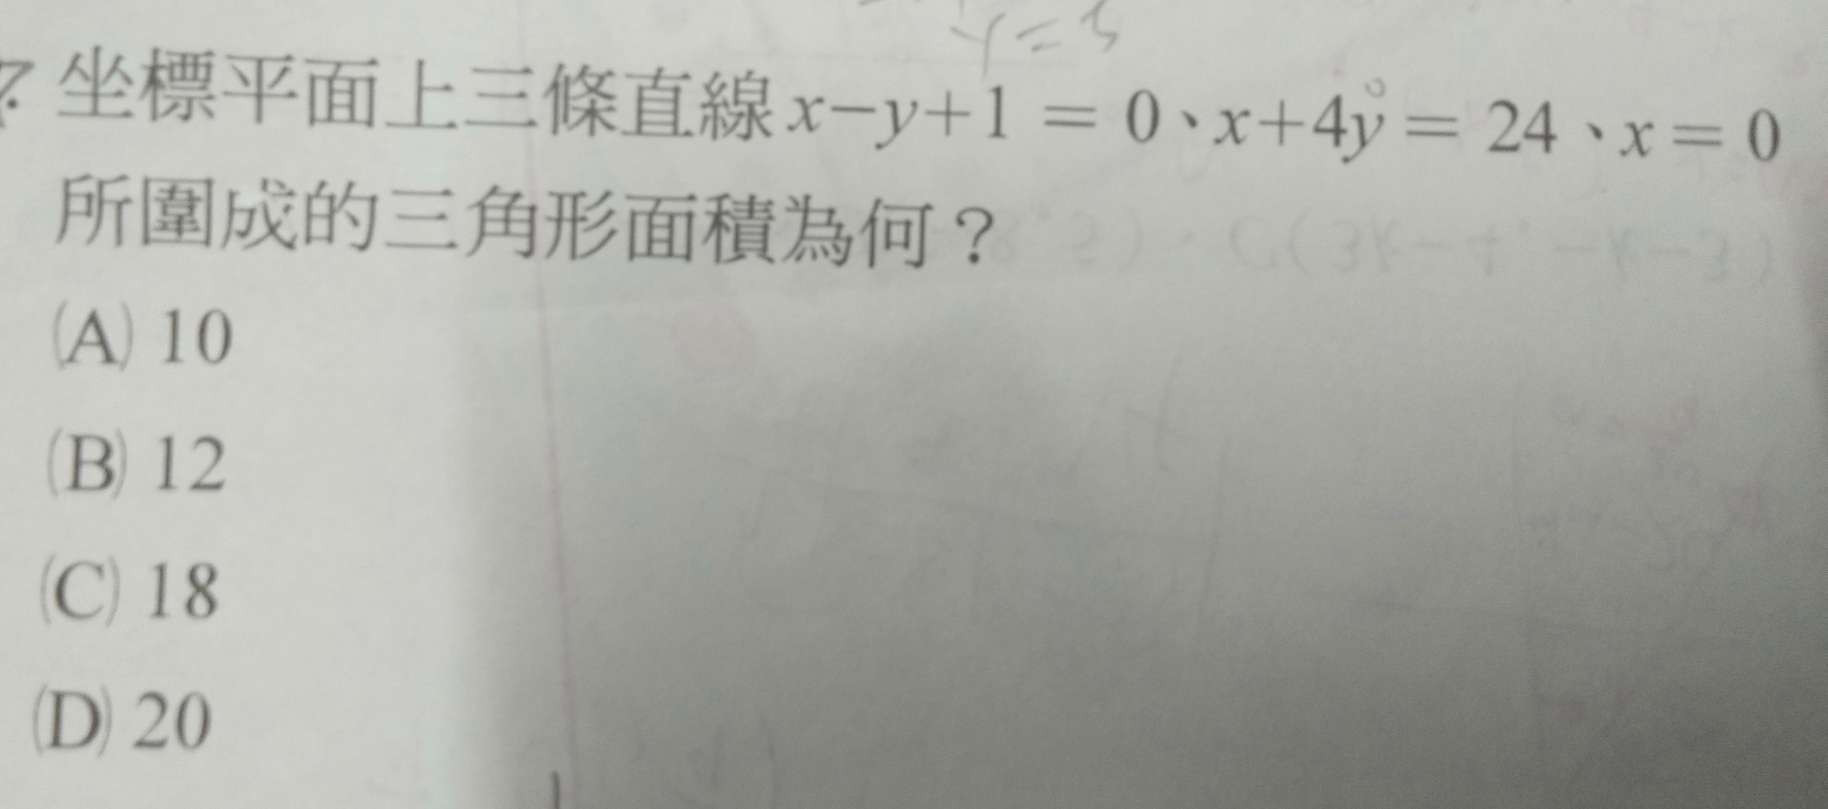 Y=5
7. 坐標平面上三條直線 x−y+1 = 0、x+4y = 24、x = 0
所圍成的三角形面積為何？
(A) 10
(B) 12
(C) 18
(D) 20